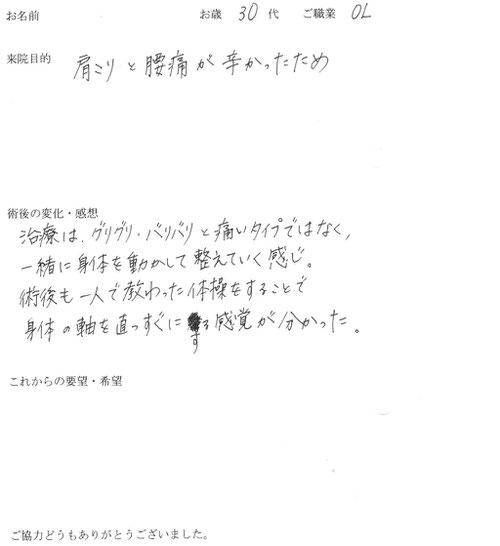 お名前 お歳 30 代 ご職業 OL
来院目的 肩こりと腰痛が辛かったため
術後の変化・感想
治療は、グリグリ・バリバリと痛いタイプではなく、
一緒に身体を動かして整えていく感じ。
術後も一人で教わった体操をすることで
身体の軸を真っすぐにする感覚が分かった。
これからの要望・希望
ご協力どうもありがとうございました。